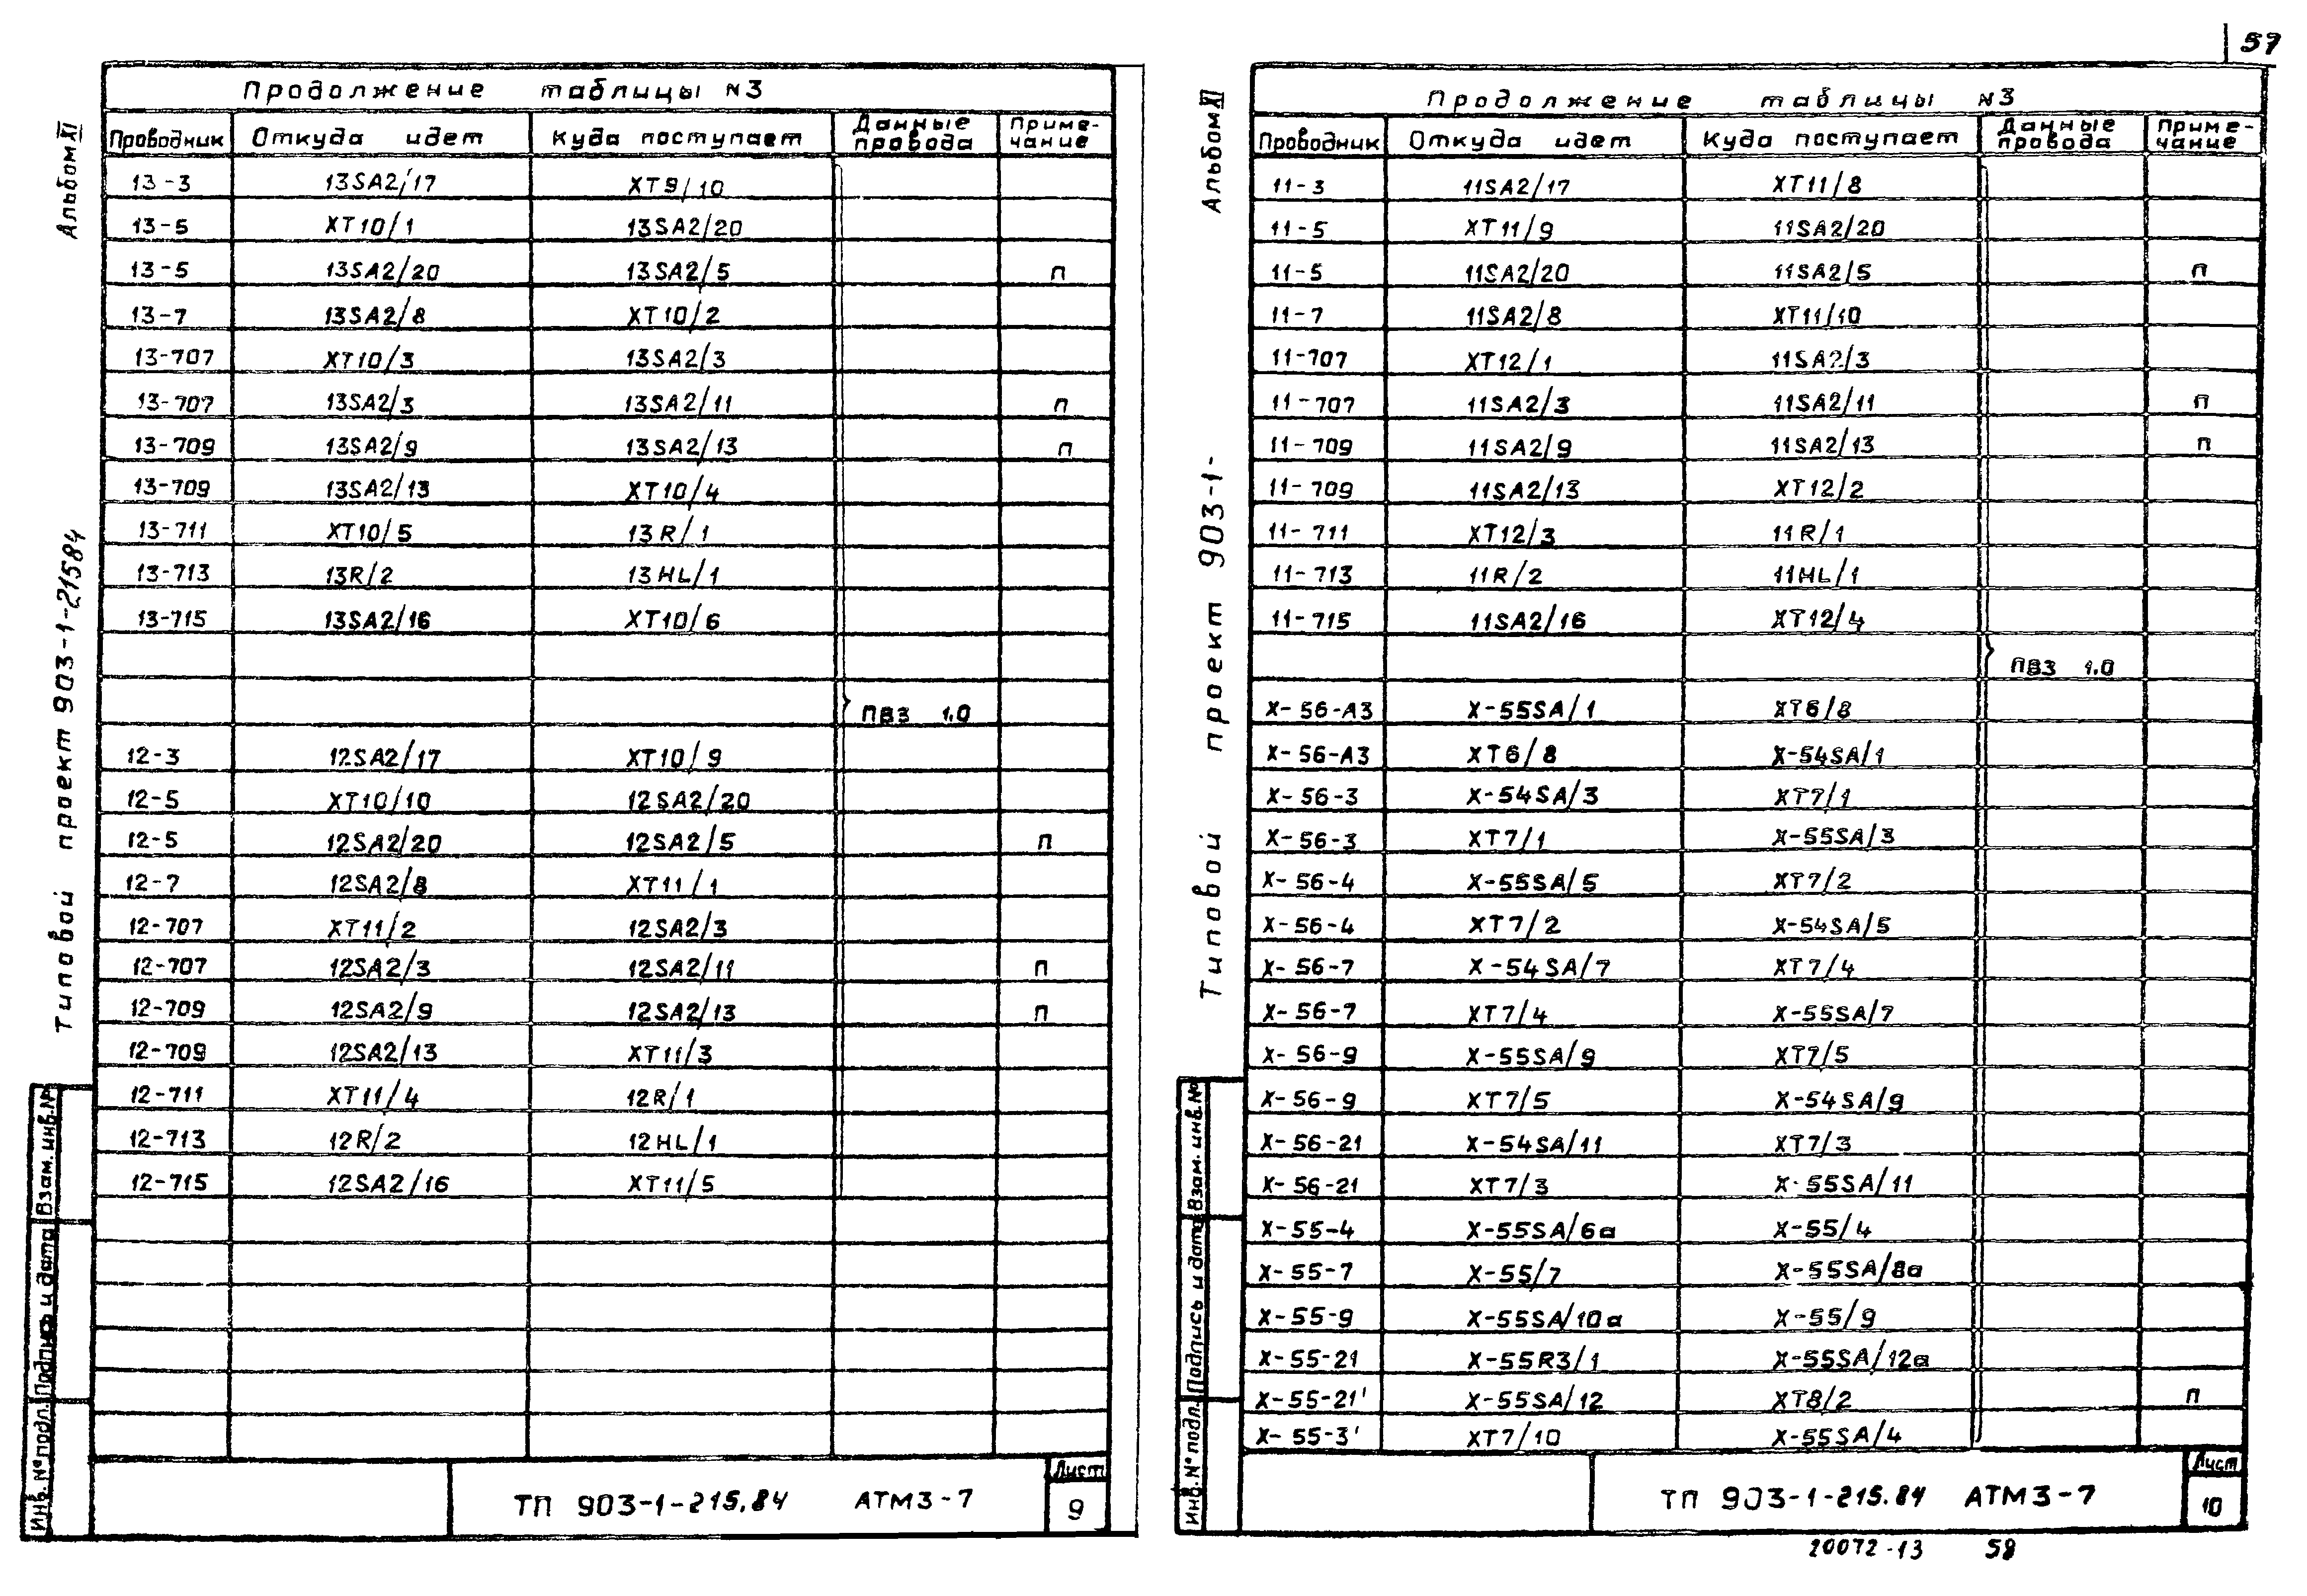 57
Альбом XI
Типовой проект 903-1-21584
Продолжение таблицы N3
Проводник Откуда идет Куда поступает Данные провода Приме-чание
13-3 13SA2/17 XT9/10
13-5 XT10/1 13SA2/20
13-5 13SA2/20 13SA2/5 П
13-7 13SA2/8 XT10/2
13-707 XT10/3 13SA2/3
13-707 13SA2/3 13SA2/11 П
13-709 13SA2/9 13SA2/13 П
13-709 13SA2/13 XT10/4
13-711 XT10/5 13R/1
13-713 13R/2 13HL/1
13-715 13SA2/16 XT10/6
ПВ3 1.0
12-3 12SA2/17 XT10/9
12-5 XT10/10 12SA2/20
12-5 12SA2/20 12SA2/5 П
12-7 12SA2/8 XT11/1
12-707 XT11/2 12SA2/3
12-707 12SA2/3 12SA2/11 П
12-709 12SA2/9 12SA2/13 П
12-709 12SA2/13 XT11/3
12-711 XT11/4 12R/1
12-713 12R/2 12HL/1
12-715 12SA2/16 XT11/5
Взам. инв. №
Подпись и дата
Инв. № подл.
ТП 903-1-215.84 АТМ3-7
Лист
9
Альбом XI
Типовой проект 903-1-
Продолжение таблицы N3
Проводник Откуда идет Куда поступает Данные провода Приме-чание
11-3 11SA2/17 XT11/8
11-5 XT11/9 11SA2/20
11-5 11SA2/20 11SA2/5 П
11-7 11SA2/8 XT11/10
11-707 XT12/1 11SA2/3
11-707 11SA2/3 11SA2/11 П
11-709 11SA2/9 11SA2/13 П
11-709 11SA2/13 XT12/2
11-711 XT12/3 11R/1
11-713 11R/2 11HL/1
11-715 11SA2/16 XT12/4
ПВ3 1.0
X-56-A3 X-55SA/1 XT6/8
X-56-A3 XT6/8 X-54SA/1
X-56-3 X-54SA/3 XT7/1
X-56-3 XT7/1 X-55SA/3
X-56-4 X-55SA/5 XT7/2
X-56-4 XT7/2 X-54SA/5
X-56-7 X-54SA/7 XT7/4
X-56-7 XT7/4 X-55SA/7
X-56-9 X-55SA/9 XT7/5
X-56-9 XT7/5 X-54SA/9
X-56-21 X-54SA/11 XT7/3
X-56-21 XT7/3 X-55SA/11
X-55-4 X-55SA/6a X-55/4
X-55-7 X-55/7 X-55SA/8a
X-55-9 X-55SA/10a X-55/9
X-55-21 X-55R3/1 X-55SA/12a
X-55-21' X-55SA/12 XT8/2 П
X-55-3' XT7/10 X-55SA/4
Взам. инв. №
Подпись и дата
Инв. № подл.
ТП 903-1-215.84 АТМ3-7
Лист
10
20072-13 58